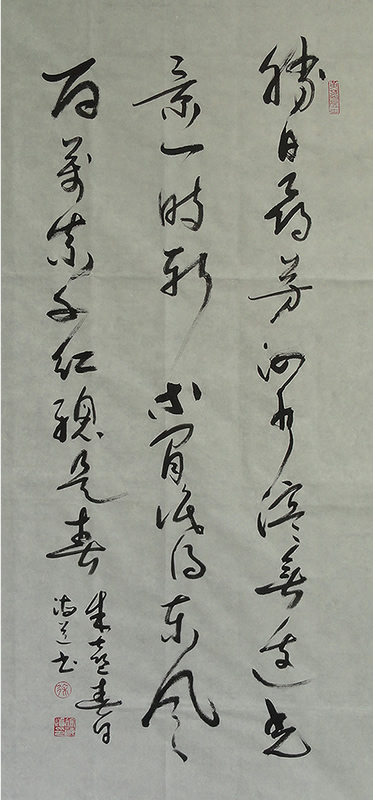 勝日尋芳泗水濱無邊光
景一時新等閒識得东風
面萬紫千紅總是春
朱熹春日
书